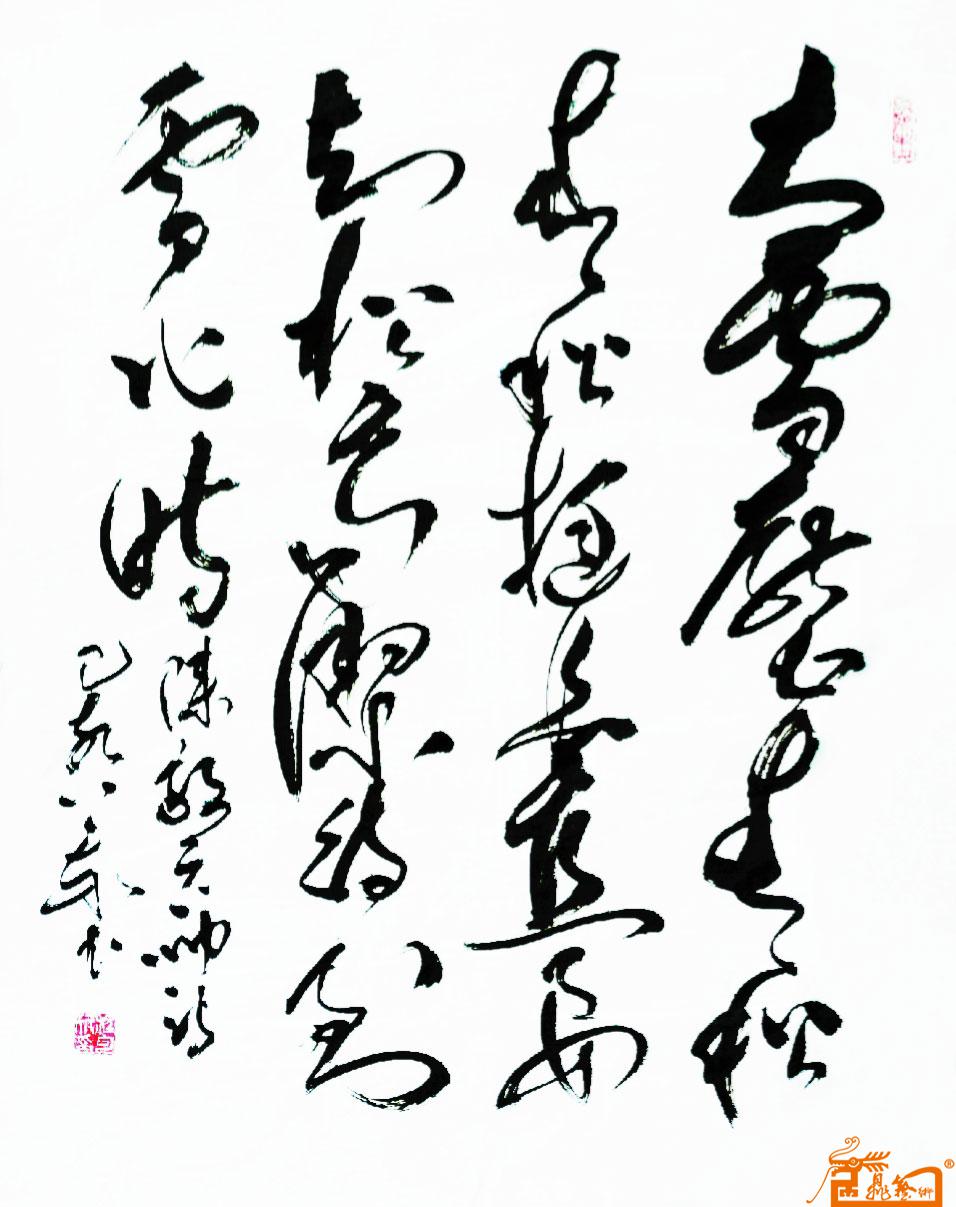 大雪压青松
青松挺且直要
知松高洁待到
雪化时陈毅元帅诗
己亥八